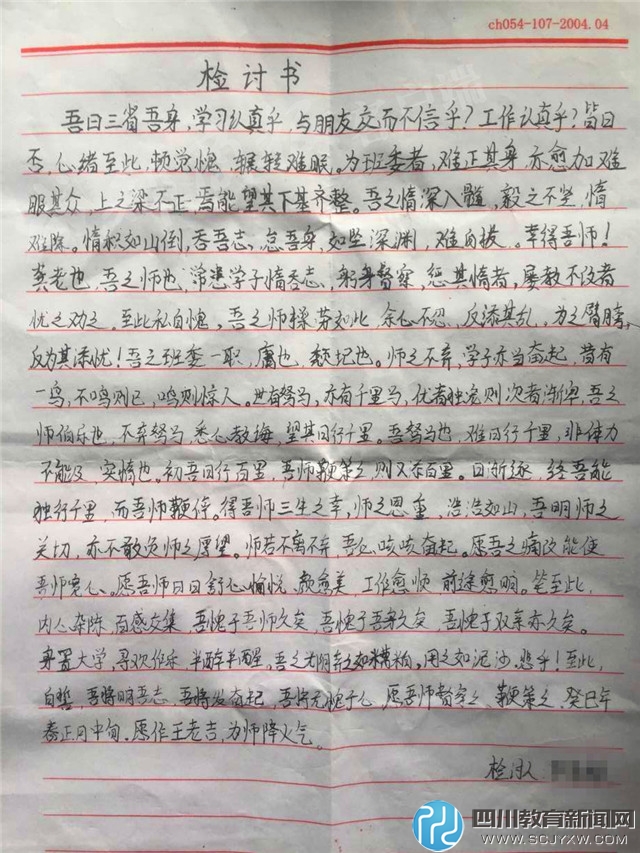 ch054-107-2004.04
检讨书
吾日三省吾身,学习认真乎,与朋友交而不信乎?工作认真乎?皆曰
否,心绪至此,顿觉愧,辗转难眠。为班委者,难正其身,亦愈加难
服其众,上之梁不正,焉能望其下基齐整。吾之惰深入髓,毅之不坚,惰
难除。惰积如山倒,吞吾志,怠吾身,如坠深渊,难自拔。幸得吾师!
龚老也,吾之师也,常悲学子惰吞志,躬身督察,惩其惰者,屡教不改者
忧之劝之,至此私自愧,吾之师操劳如此,余心不忍,反添其乱,为之臂膀,
反为其添忧!吾之班委一职,庸也,颓圮也。师之不弃,学子亦当奋起,昔有
一鸟,不鸣则已,鸣则惊人。世有驽马,亦有千里马,优者独党则次者渐淘,吾之
师伯乐也,不弃驽马,悉心教诲,望其日行千里。吾驽马也,难日行千里,非体力
不能及,实惰也。初吾日行百里,吾师鞭策之则又添百里。日渐逐,终吾能
独行千里,而吾师鞭侍。得吾师三生之幸,师之恩重,浩浩如山,吾明师之
关切,亦不敢负师之厚望。师若不离不弃,吾必咳咳奋起。愿吾之痛改能使
吾师宽心。愿吾师日日舒心愉悦,颜愈美,工作愈顺,前途愈明。笔至此,
内心杂陈,百感交集,吾愧于吾师久矣,吾愧于吾身久矣,吾愧于双亲亦久矣。
身置大学,寻欢作乐,半醉半醒,吾之光阴弃之如糟粕,用之如泥沙,悲乎!至此,
自誓,吾将明吾志,吾将发奋起,吾将无愧于心,愿吾师督察之,鞭策之,癸巳年
春正月中旬。愿作王老吉,为师降火气。
检讨人
四川教育新闻网
WWW.SCJYXW.COM